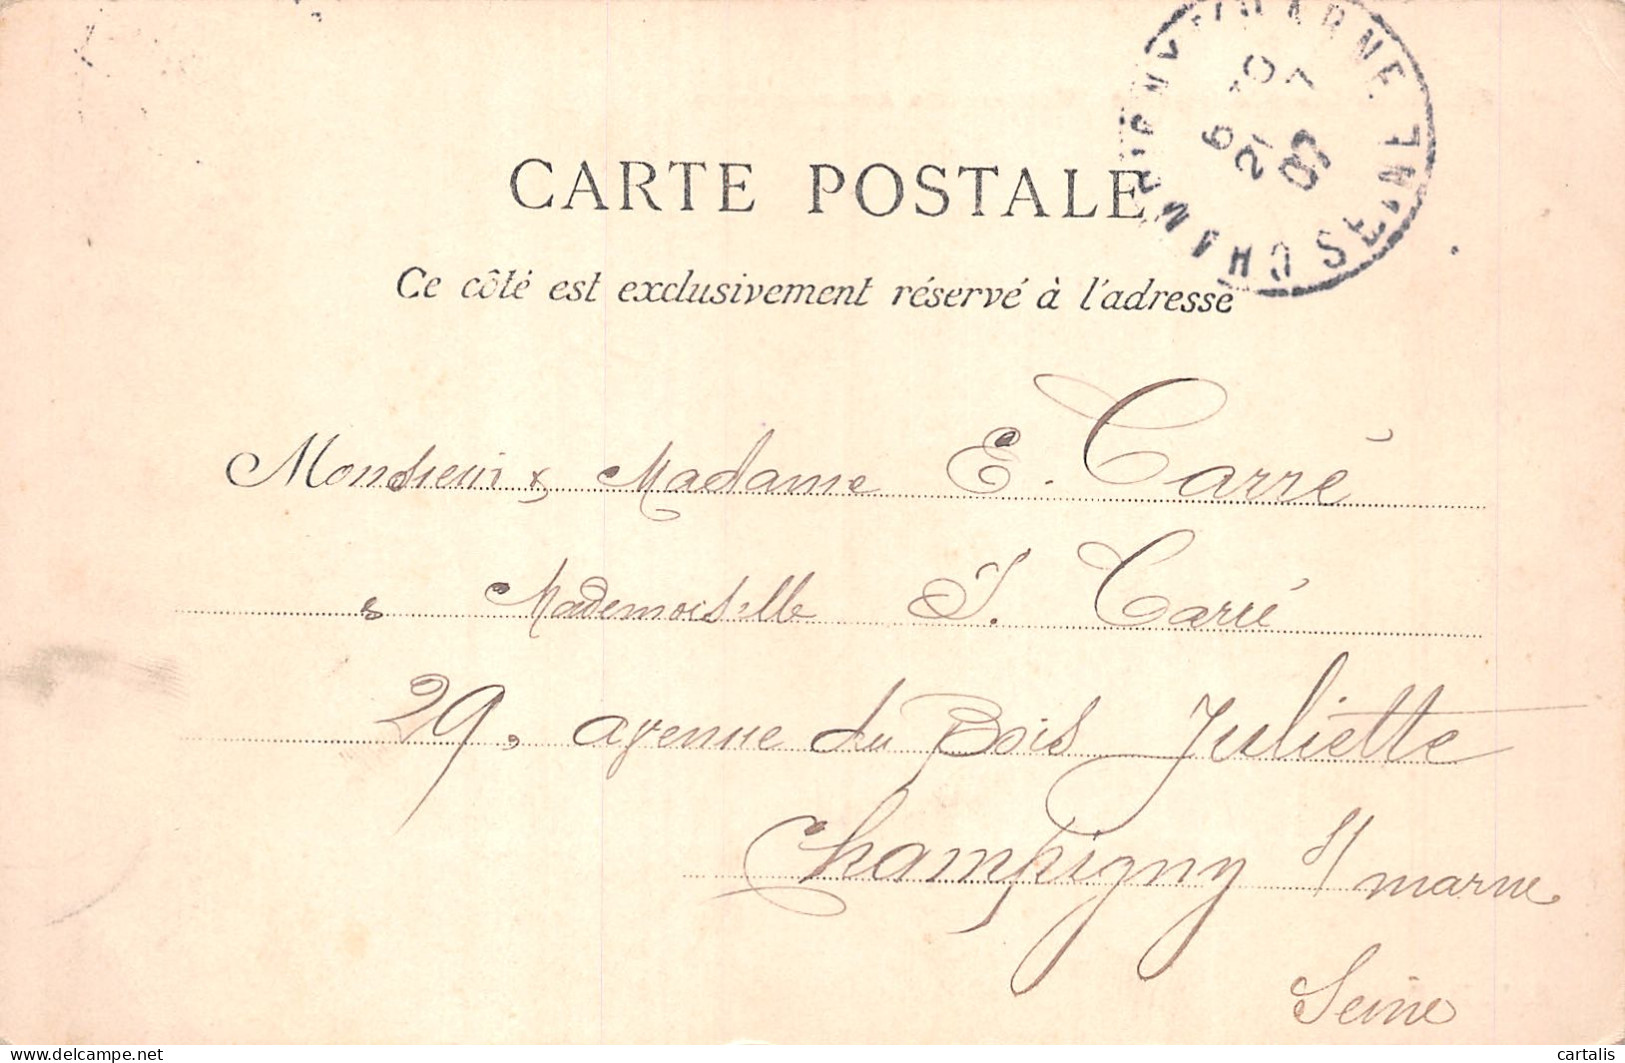 CARTE POSTALE
Ce côté est exclusivement réservé à l'adresse
CHAMPIGNY-S-MARNE
SEINE
6 30
21 7
Monsieur & Madame E. Carré
& Mademoiselle S. Carré
29, avenue du Bois Juliette
Champigny s/ marne
Seine
delcampe.net
cartalis